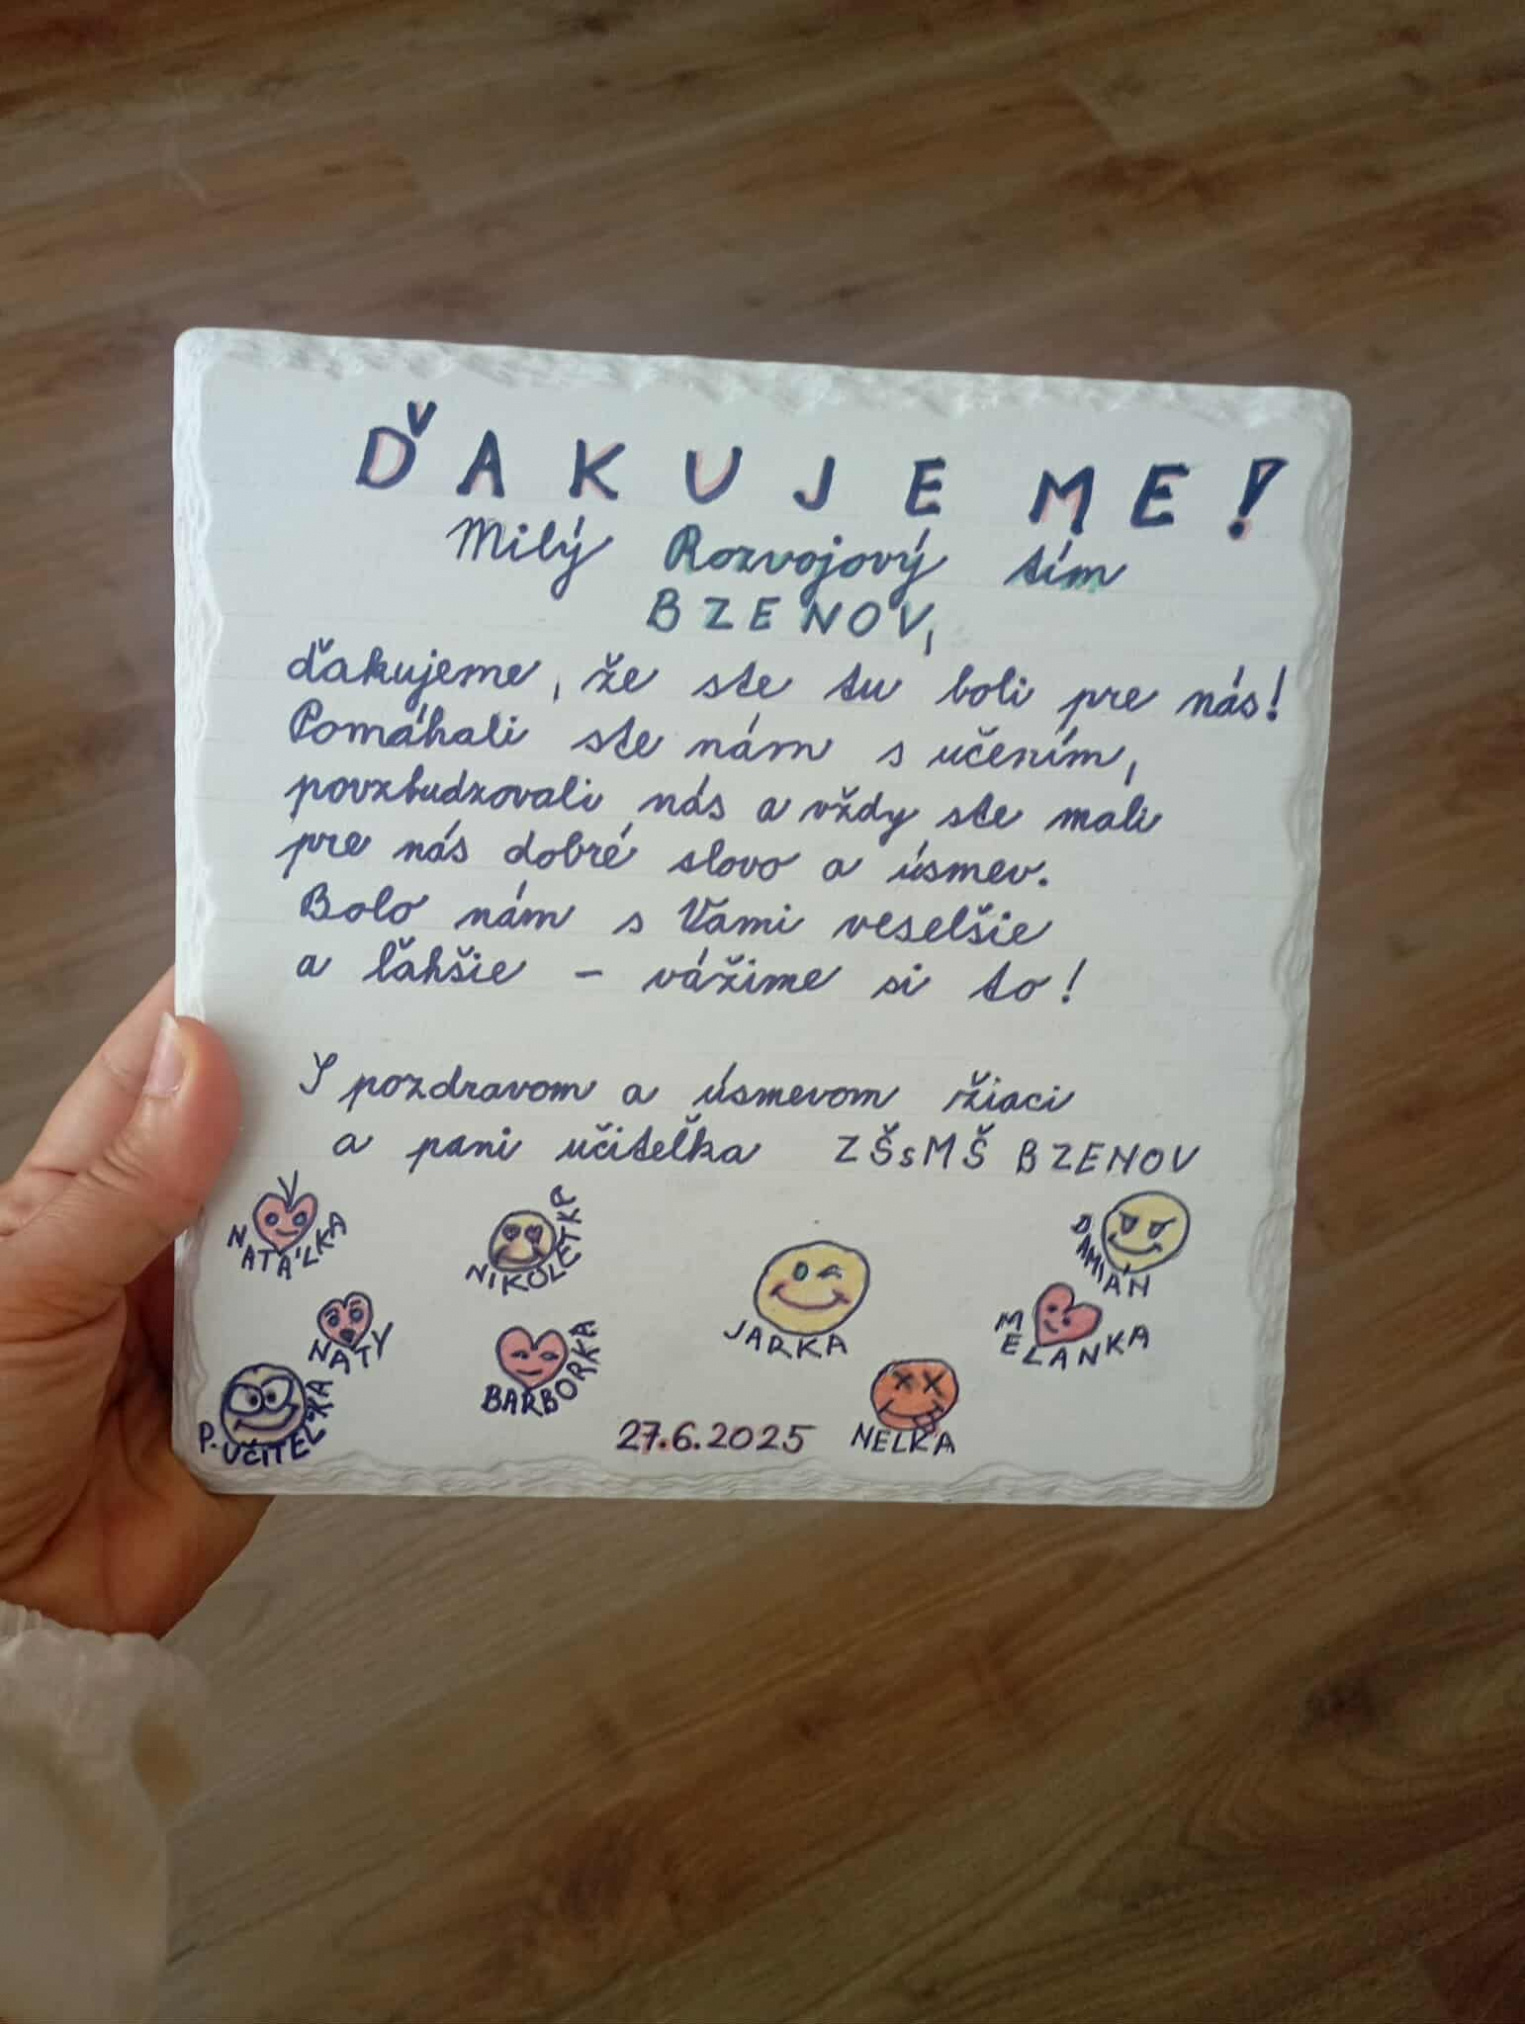 ĎAKUJEME!
Milý Rozvojový tím
BZENOV,
ďakujeme, že ste tu boli pre nás!
Pomáhali ste nám s učením,
povzbudzovali nás a vždy ste mali
pre nás dobré slovo a úsmev.
Bolo nám s Vami veselšie
a ľahšie - vážime si to!
S pozdravom a úsmevom žiaci
a pani učiteľka ZŠsMŠ BZENOV
NATÁLKA
NIKOLETKA
DAMIÁN
NATY
BARBORKA
JARKA
MELANKA
P. UČITEĽKA
27.6.2025
NELKA